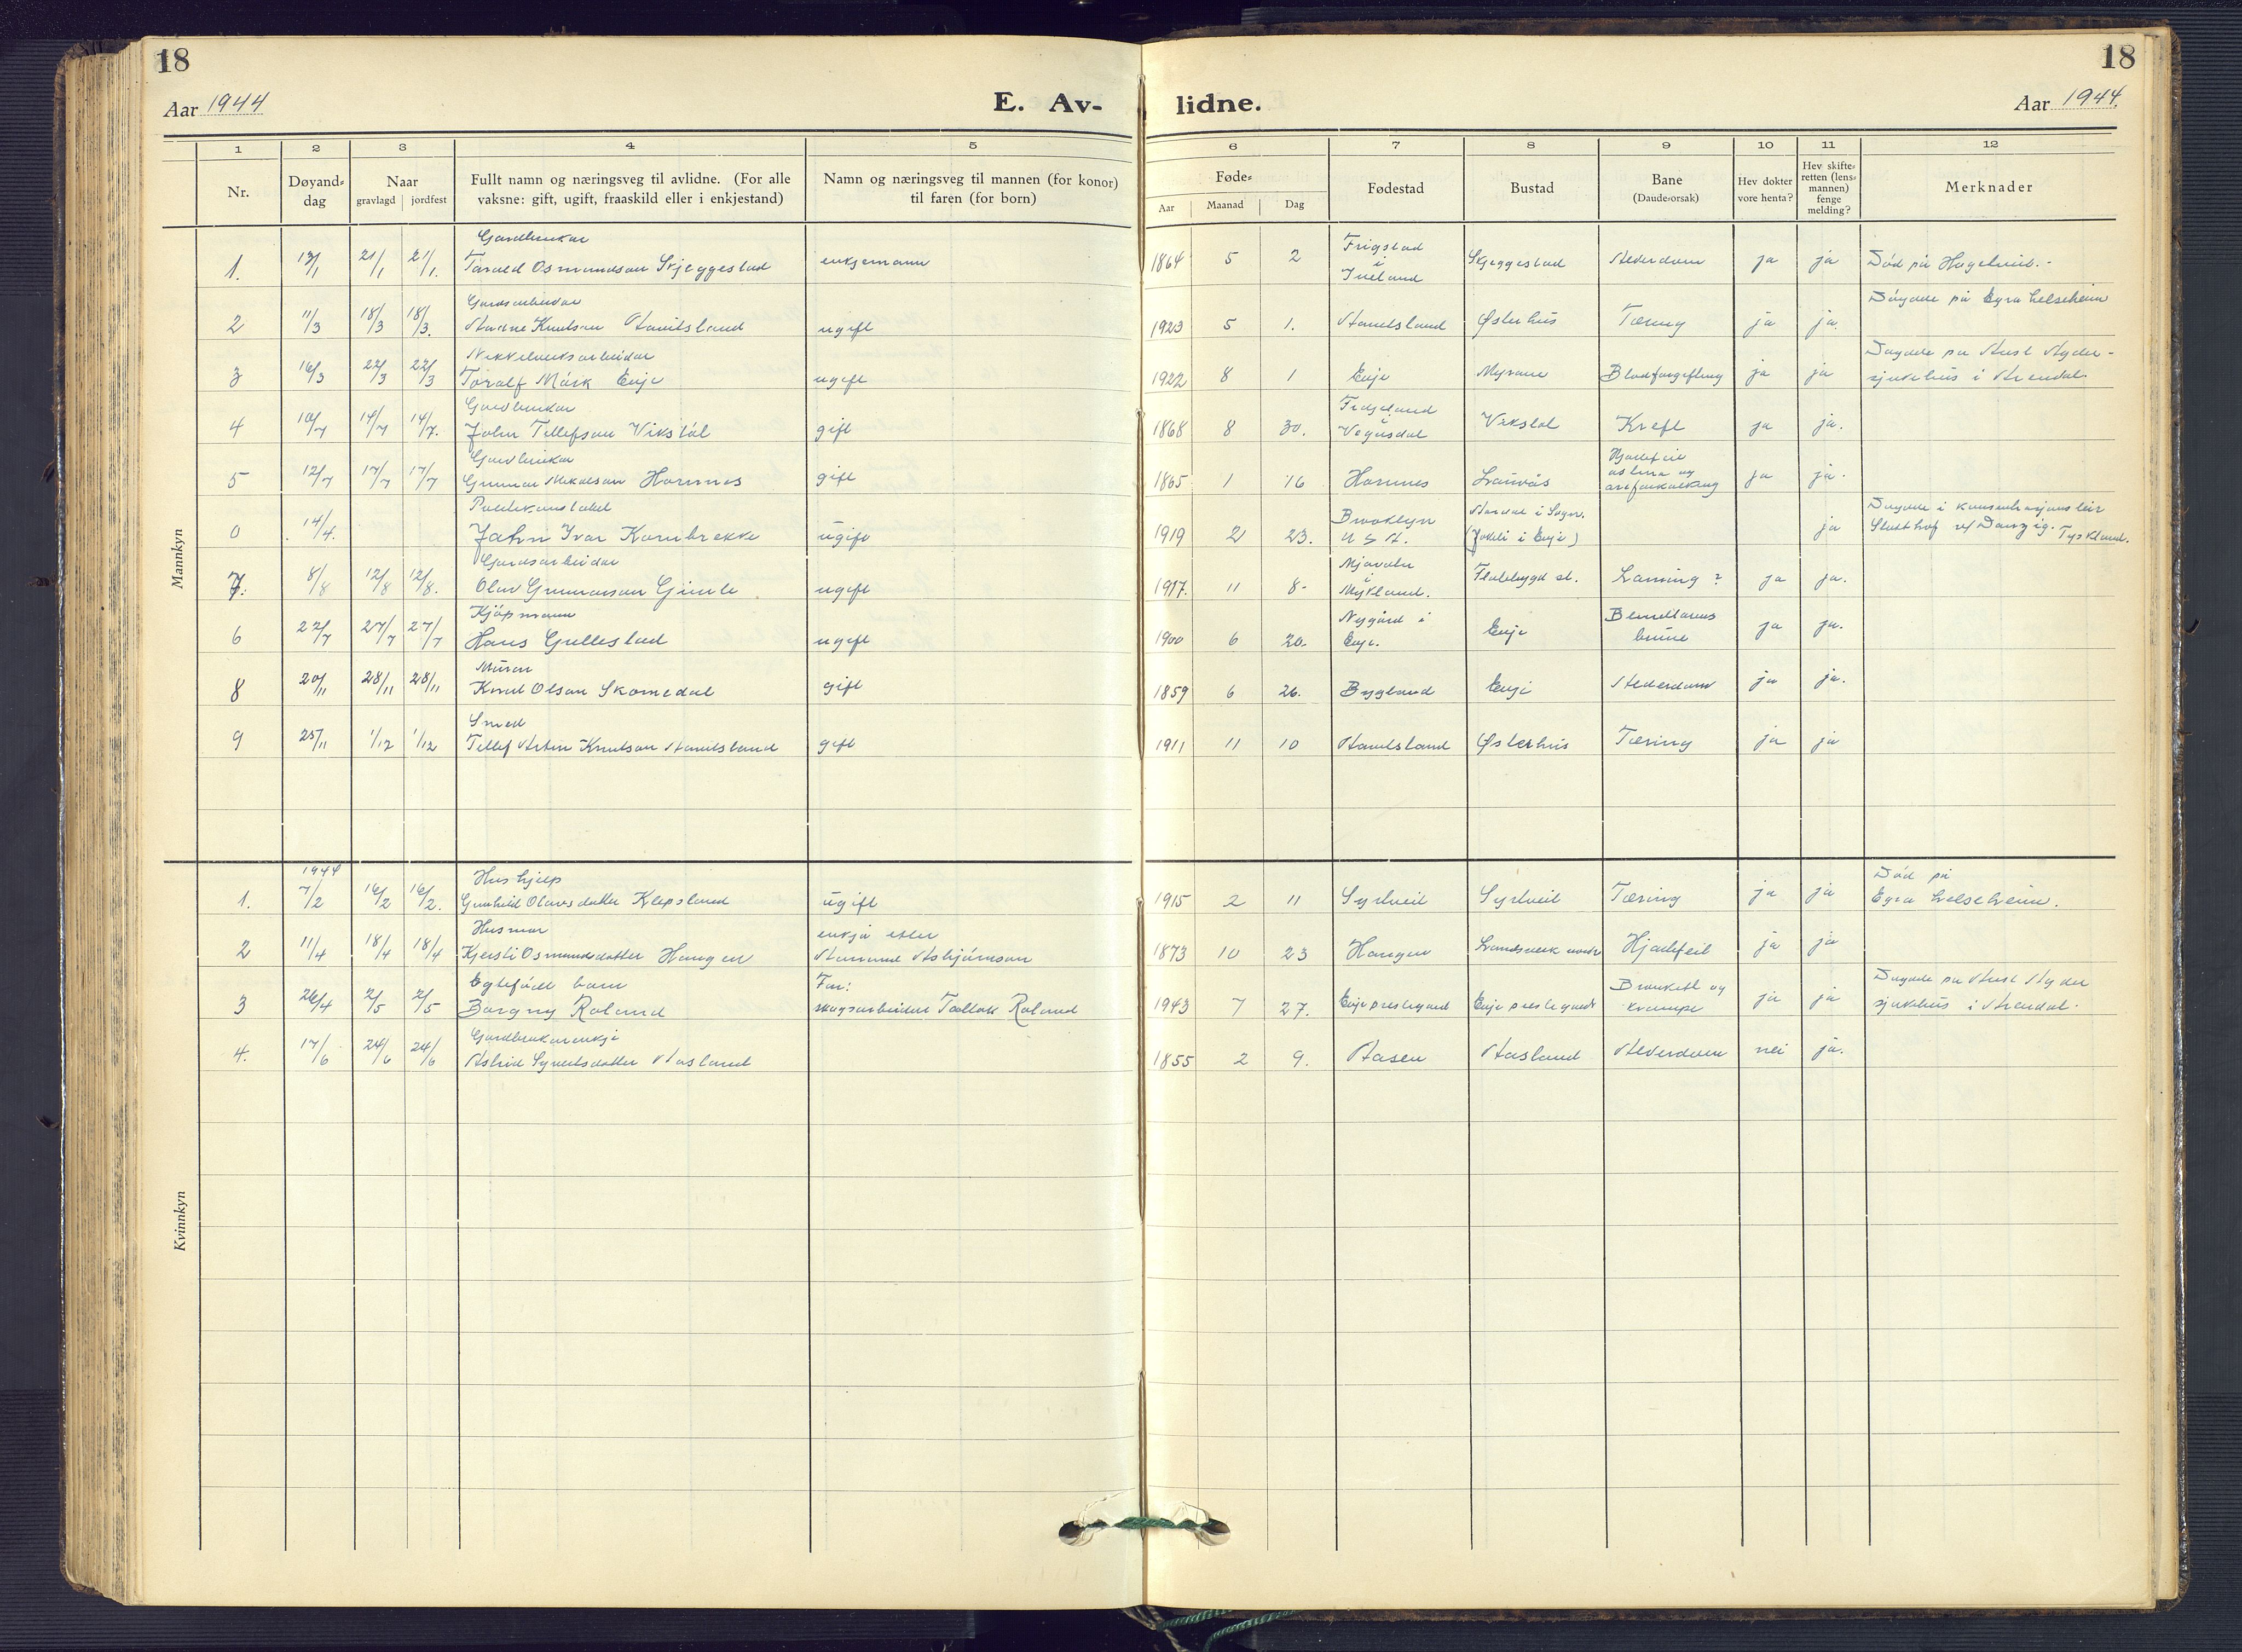 18
18
Aar 1944
E. Av-
lidne.
Aar 1944.
1 2 3 4 5
6 7 8 9 10 11 12
Nr.
Døyand-
dag
Naar
gravlagd | jordfest
Fullt namn og næringsveg til avlidne. (For alle
vaksne: gift, ugift, fraaskild eller i enkjestand)
Namn og næringsveg til mannen (for konor)
til faren (for born)
Føde-
Aar Maanad Dag
Fødestad
Bustad
Bane
(Daudeorsak)
Hev dokter
vore henta?
Hev skifte-
retten (lens-
mannen)
fenge
melding?
Merknader
Mannkyn
Gardbrukar
1. 13/1 21/1 21/1. Tarald Osmundson Skjeggestad enkjemann 1864 5 2 Frigstad i Iveland Skjeggestad Alderdom ja ja Död på Hageheid.-
Gardsarbeidar
2 11/3 18/3 18/3. Aarne Knutson Aanitsland ugift 1923 5 1. Aanitsland Østerhus Tæring ja ja. Döydde på Egra helseheim
Nikkelverksarbeidar
3 16/3 22/3 22/3 Toralf Mörk Evje ugift 1922 8 1 Evje Myrane Blodforgiftning ja ja Döydde på Aust Agder-
sjukehus i Arendal
Gardbrukar
4 10/7 14/7 14/7. John Tellefson Vikstöl gift 1868 8 30. Vegusdal Vikstöl Kreft ja ja.
Gardbrukar
5 12/7 17/7 17/7 Gunnar Mikalson Hornnes gift 1865 1 16 Hornnes Lauvås Hjartefeil
astma og
areforkalkning ja ja.
Politikonstabel
0 14/4. Jahn Ivar Kornbrekke ugift 1919 2 23. Brooklyn
U S A. Aardal i Sogn.
(Jokeli i Evje) ja Döydde i konsentrasjonsleir
Stutthof v/ Danzig. Tyskland.
Gardsarbeidar
7. 8/8 12/8 12/8. Olav Gunnarson Gimle ugift 1917. 11 8- Mjavatn
i
Mykland. Flatebygd st. Laming? ja ja.
Kjöpmann
6 22/7 27/7 27/7 Hans Gullestad ugift 1900 6 20. Nygård i
Evje. Evje ja ja.
Murar
8 20/11 28/11 28/11 Knut Olson Skomedal gift 1859 6 26. Bygland Evje Alderdom ja ja.
Smed
9 25/11 1/12 1/12 Tellef Anton Knutson Aanitsland gift 1911 11 10 Aanitsland Østerhus Tæring ja ja
Kvinnkyn
1944
Hushjelp
1. 7/2 16/2 16/2. Gunhild Olavsdotter Klepsland ugift 1915 2 11 Syrtveit Syrtveit Tæring ja ja Död på
Egra helseheim.
Husmor
2 11/4 18/4 18/4 Kjersti Osmundsdotter Haugen enkja etter
Aanund Asbjörnson 1873 10 23 Haugen Landsverk nordre Hjartefeil ja ja
Egtefödt barn
3 26/4 2/5 2/5 Borgny Roland Far:
skogsarbeidar Tallak Roland 1943 7 27. Evje prestegard Evje prestegard Bronkitt og
krampe ja ja Döydde på Aust Agder
sjukehus i Arendal.
Gardbrukarenkje
4. 17/6 24/6 24/6 Astrid Syvertsdotter Aasland 1855 2 9. Aasen Aasland Alderdom nei ja.